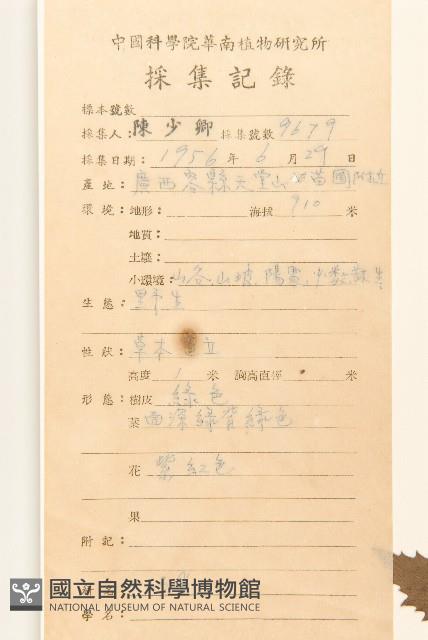 中國科學院華南植物研究所
採集記錄
標本號數
採集人：陳少卿 採集號數 9679
採集日期：1956 年 6 月 29 日
產地：廣西容縣天堂山 苗圃附近
環境：地形： 海拔 910 米
地質：
土壤：
小環境：山谷，山坡，陽處，少數疎生
生態：野生
性狀：草本 直立
高度 1 米 胸高直徑 米
形態：樹皮 綠色
葉 面深綠背綠色
花 紫紅色
果
附記：
學名：
國立自然科學博物館
NATIONAL MUSEUM OF NATURAL SCIENCE